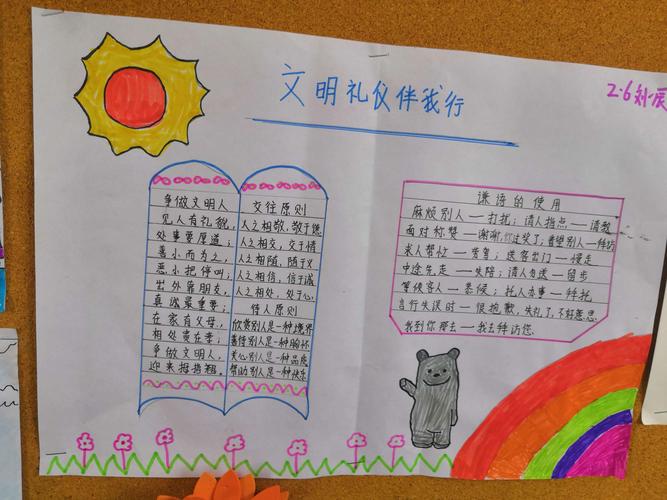 文明礼仪伴我行
2.6
争做文明人
见人有礼貌,
处事要厚道;
善小而为之,
恶小把停叫;
出外靠朋友,
真诚最重要;
在家有父母,
相处贵在孝;
争做文明人,
迎来拇指翘。
交往原则
人之相敬,敬于德
人之相交,交于情
人之相随,随于义
人之相信,信于诚
人之相处,处于心。
待人原则
欣赏别人是一种境界
善待别人是一种胸怀
关心别人是一种品质
帮助别人是一种快乐
谦语的使用
麻烦别人——打扰;请人指点——请教
面对称赞——谢谢,你过奖了;看望别人——拜访
求人帮忙——劳驾;送客出门——慢走
中途先走——失陪;请人勿送——留步
等候客人——恭候;托人办事——拜托
言行失误时——很抱歉,失礼了,不好意思
我到你那去——我去拜访您。